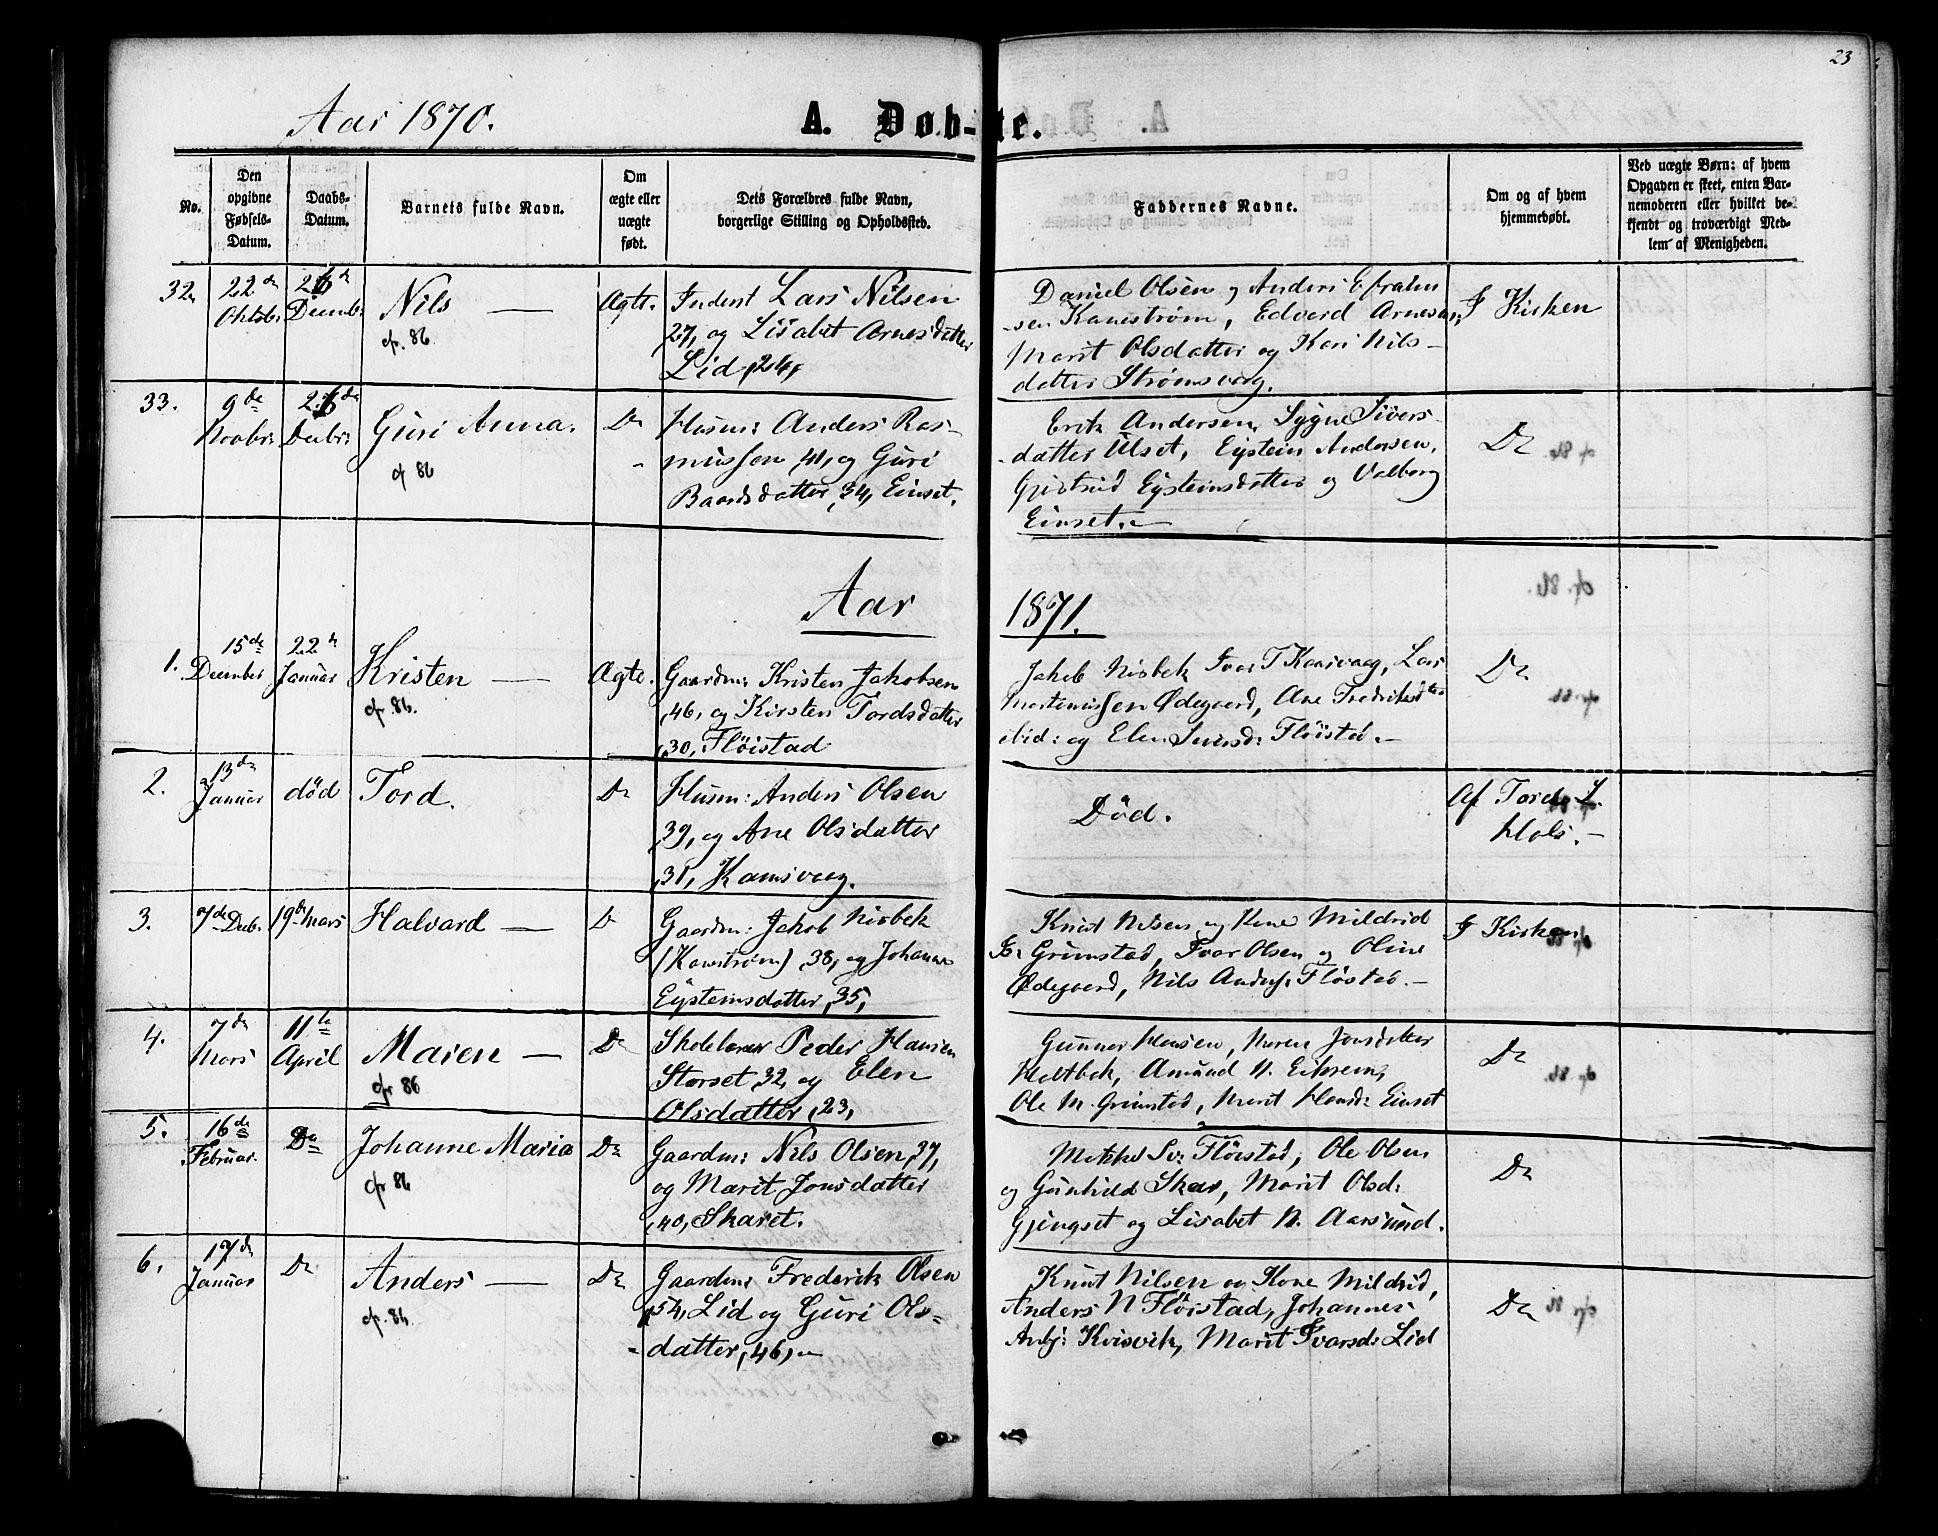 23
Aar 1870.
A. Døb-te.
No.
Den opgivne Fødsels-Datum.
Daabs-Datum.
Barnets fulde Navn.
Om ægte eller uægte født.
Dets Forældres fulde Navn, borgerlige Stilling og Opholdssted.
Faddernes Navne.
Om og af hvem hjemmedøbt.
Ved uægte Børn: af hvem Opgaven er skeet, enten Barnemoderen eller hvilket bekjendt og troværdigt Medlem af Menigheden.
32
22de Oktob:
26de Decemb:
Nils —
cfr. 86
Ægte.
Inderst Lars Nilsen
27, og Lisabet Arnesdatter
Lid, 24,
Daniel Olsen og Anders Efraim
sen Kanestrøm, Edvard Arnesen,
Marit Olsdatter og Kari Nils-
datter Strømsvaag.
I Kirken
33.
9de Novbr:
26de Decbr:
Guri Anna.
cf 86
Do
Husm: Anders Ras-
mussen 41, og Guri
Baardsdatter, 34, Einset.
Erik Andersen, Sygne Sivers-
datter Ulset, Eystein Andersen,
Gjertrud Eysteinsdatter og Valborg
Einset.
Do
Aar 1871.
1.
15de December
22de Januar
Kristen —
cfr. 86.
Ægte.
Gaardm: Kristen Jakobsen
,46, og Kirsten Tordsdatter
,30, Fløistad
Jakob Nisbek Ivar T Kaarvaag, Lars
Mortenussen Ødegaard, Ane Fredriksdtr
ibid: og Elen Sversd: Fløistd.
Do
2.
13de Januar
død
Tord.
Do
Husm: Anders Olsen
,39, og Ane Olsdatter
,31, Kamsvaag.
Død.
Af Tord L.
Hals.
3.
7de Decb.
19de Mars
Halvard —
Do
Gaardm: Jakob Nisbek
(Kanestrøm), 38, og Johanne
Eysteinsdatter, 35,
Knud Nilsen og Kone Mildrid
Grimstad, Ivar Olsen og Oline
Ødegaard, Nils Anders: Fløstad.
I Kirken
4.
7de Mars
11te April
Maren —
cfr 86
Do
Skolelærer Peder Hansen
Storset, 32, og Elen
Olsdatter, 23,
Gunnar Hansen, Maren Jonsdatter
Holtbek, Amund N. Eikrem,
Ole M. Grimstad, Marit Hansd: Einset
Do
5.
16de Februar.
Do
Johanne Maria
cfr 86
Do
Gaardm: Nils Olsen, 27,
og Marit Jonsdatter
,40, Skaret.
Mikkel Sv: Fløistad, Ole Olsen
og Gunhild Skar, Marit Olsd:
Gjengset og Lisabet N. Aarsund.
Do
6.
17de Januar
Do
Anders —
cfr. 86
Do
Gaardm: Frederik Olsen
,54, Lid og Guri Ols-
datter, 46,
Knut Nilsen og Kone Mildrid,
Anders N Fløistad, Johannes
Anbj: Kvisvik, Marit Ivarsd: Lid
Do